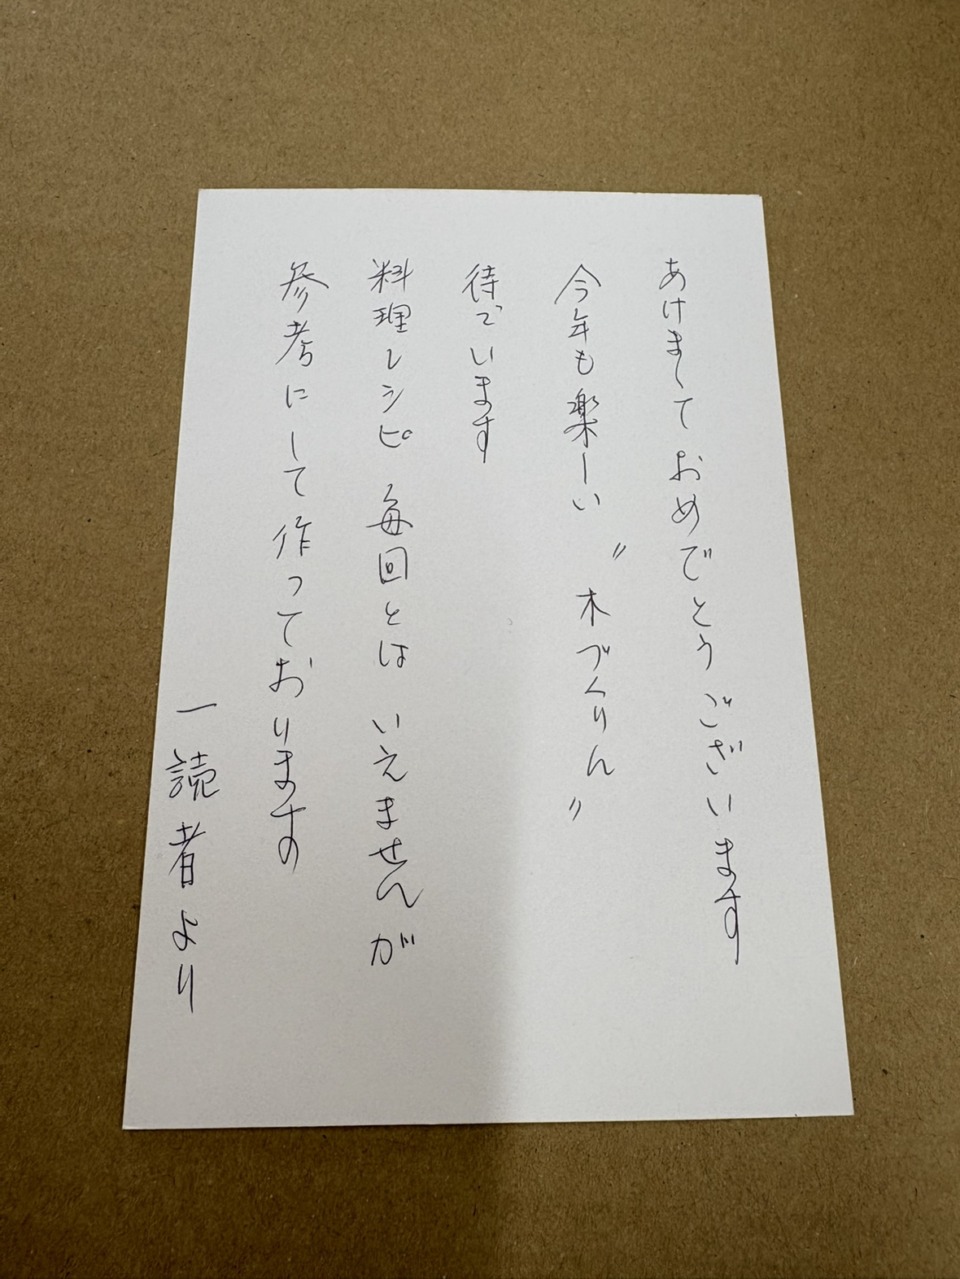 あけましておめでとうございます
今年も楽しい〝木づくりん〟
待っています
料理レシピ 毎回とは いえませんが
参考にして作っております
一読者より